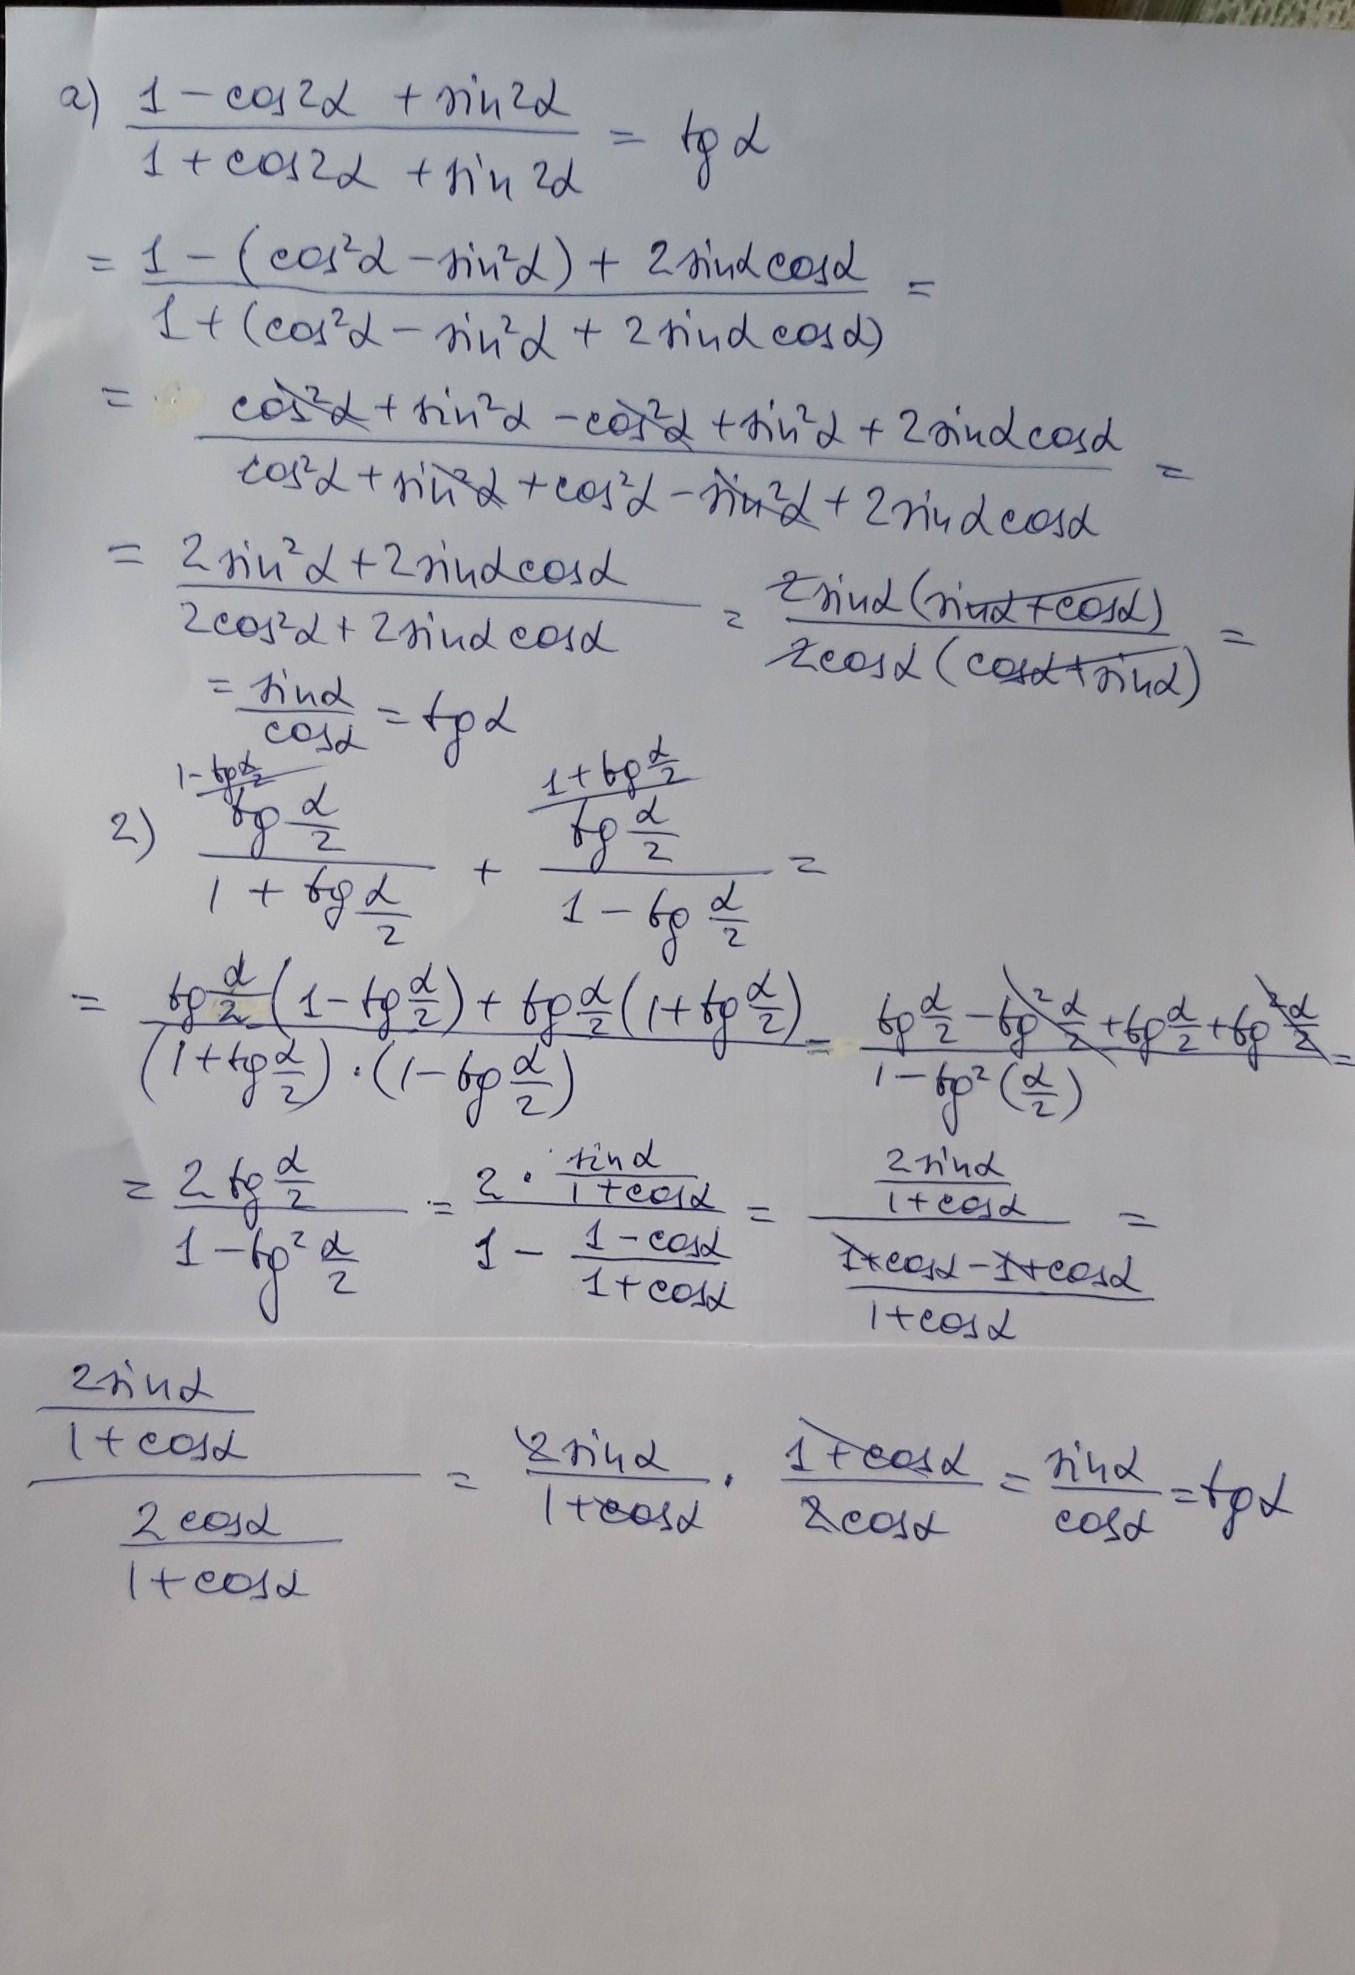 a) (1 - cos2α + sin2α)/(1 + cos2α + sin2α) = tgα
= (1 - (cos²α - sin²α) + 2sinαcosα)/(1 + (cos²α - sin²α + 2sinαcosα)) =
= (cos²α + sin²α - cos²α + sin²α + 2sinαcosα)/(cos²α + sin²α + cos²α - sin²α + 2sinαcosα) =
= (2sin²α + 2sinαcosα)/(2cos²α + 2sinαcosα) = (2sinα(sinα + cosα))/(2cosα(cosα + sinα)) =
= sinα/cosα = tgα
1 - tg α/2 1 + tg α/2
2) (tg α/2)/(1 + tg α/2) + (tg α/2)/(1 - tg α/2) =
= (tg α/2 (1 - tg α/2) + tg α/2 (1 + tg α/2))/((1 + tg α/2)·(1 - tg α/2)) = (tg α/2 - tg² α/2 + tg α/2 + tg² α/2)/(1 - tg² (α/2)) =
= (2 tg α/2)/(1 - tg² α/2) = (2 · sinα/(1 + cosα))/(1 - (1 - cosα)/(1 + cosα)) = (2sinα/(1 + cosα))/((1 + cosα - 1 + cosα)/(1 + cosα)) =
(2sinα/(1 + cosα))/(2cosα/(1 + cosα)) = 2sinα/(1 + cosα) · (1 + cosα)/2cosα = sinα/cosα = tgα